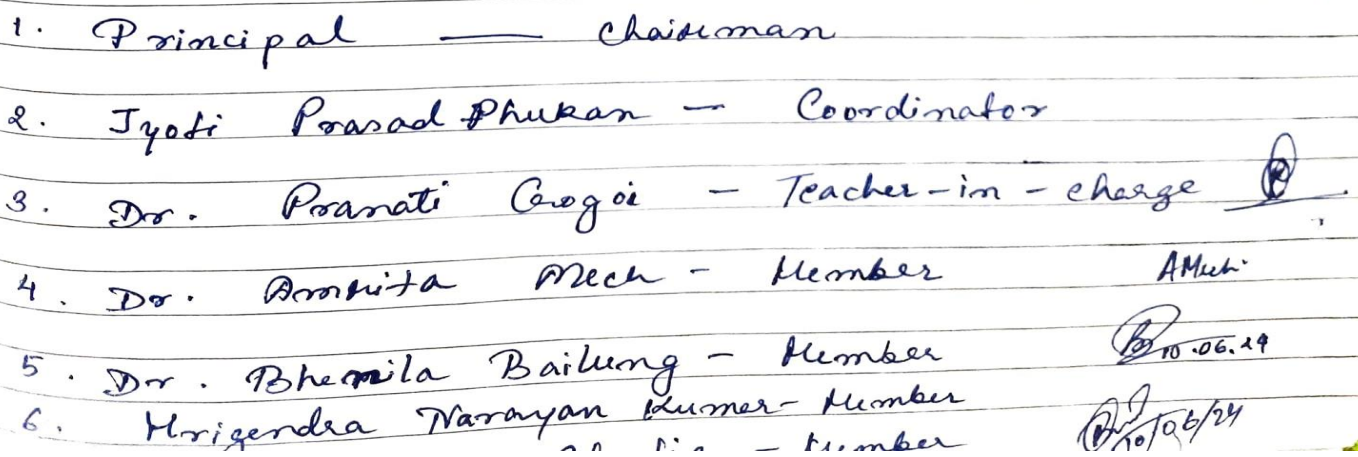 1. Principal — Chairman
2. Jyoti Prasad Phukan — Coordinator
3. Dr. Pranati Gogoi - Teacher-in-charge
4. Dr. Amrita Mech - Member AMech
5. Dr. Bhemila Bailung - Member 10.06.24
6. Mrigendra Narayan Kumar - Member 10/06/24
- Member